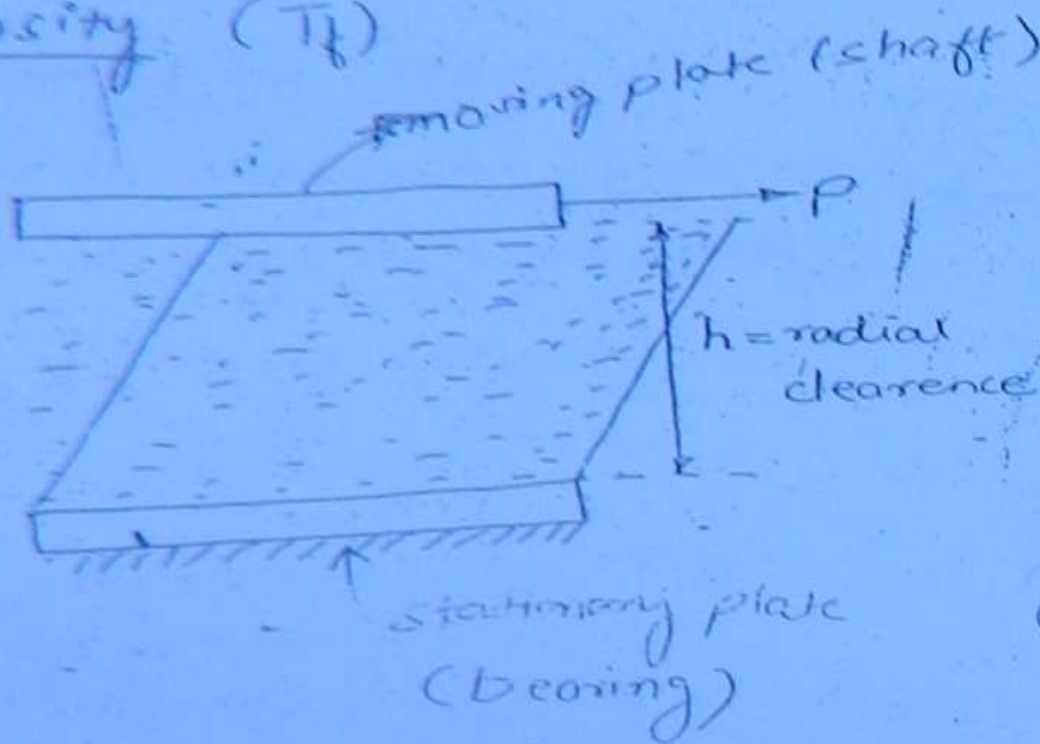 osity (Tf)
moving plate (shaft)
P
h = radial
clearence
stationary plate
(bearing)